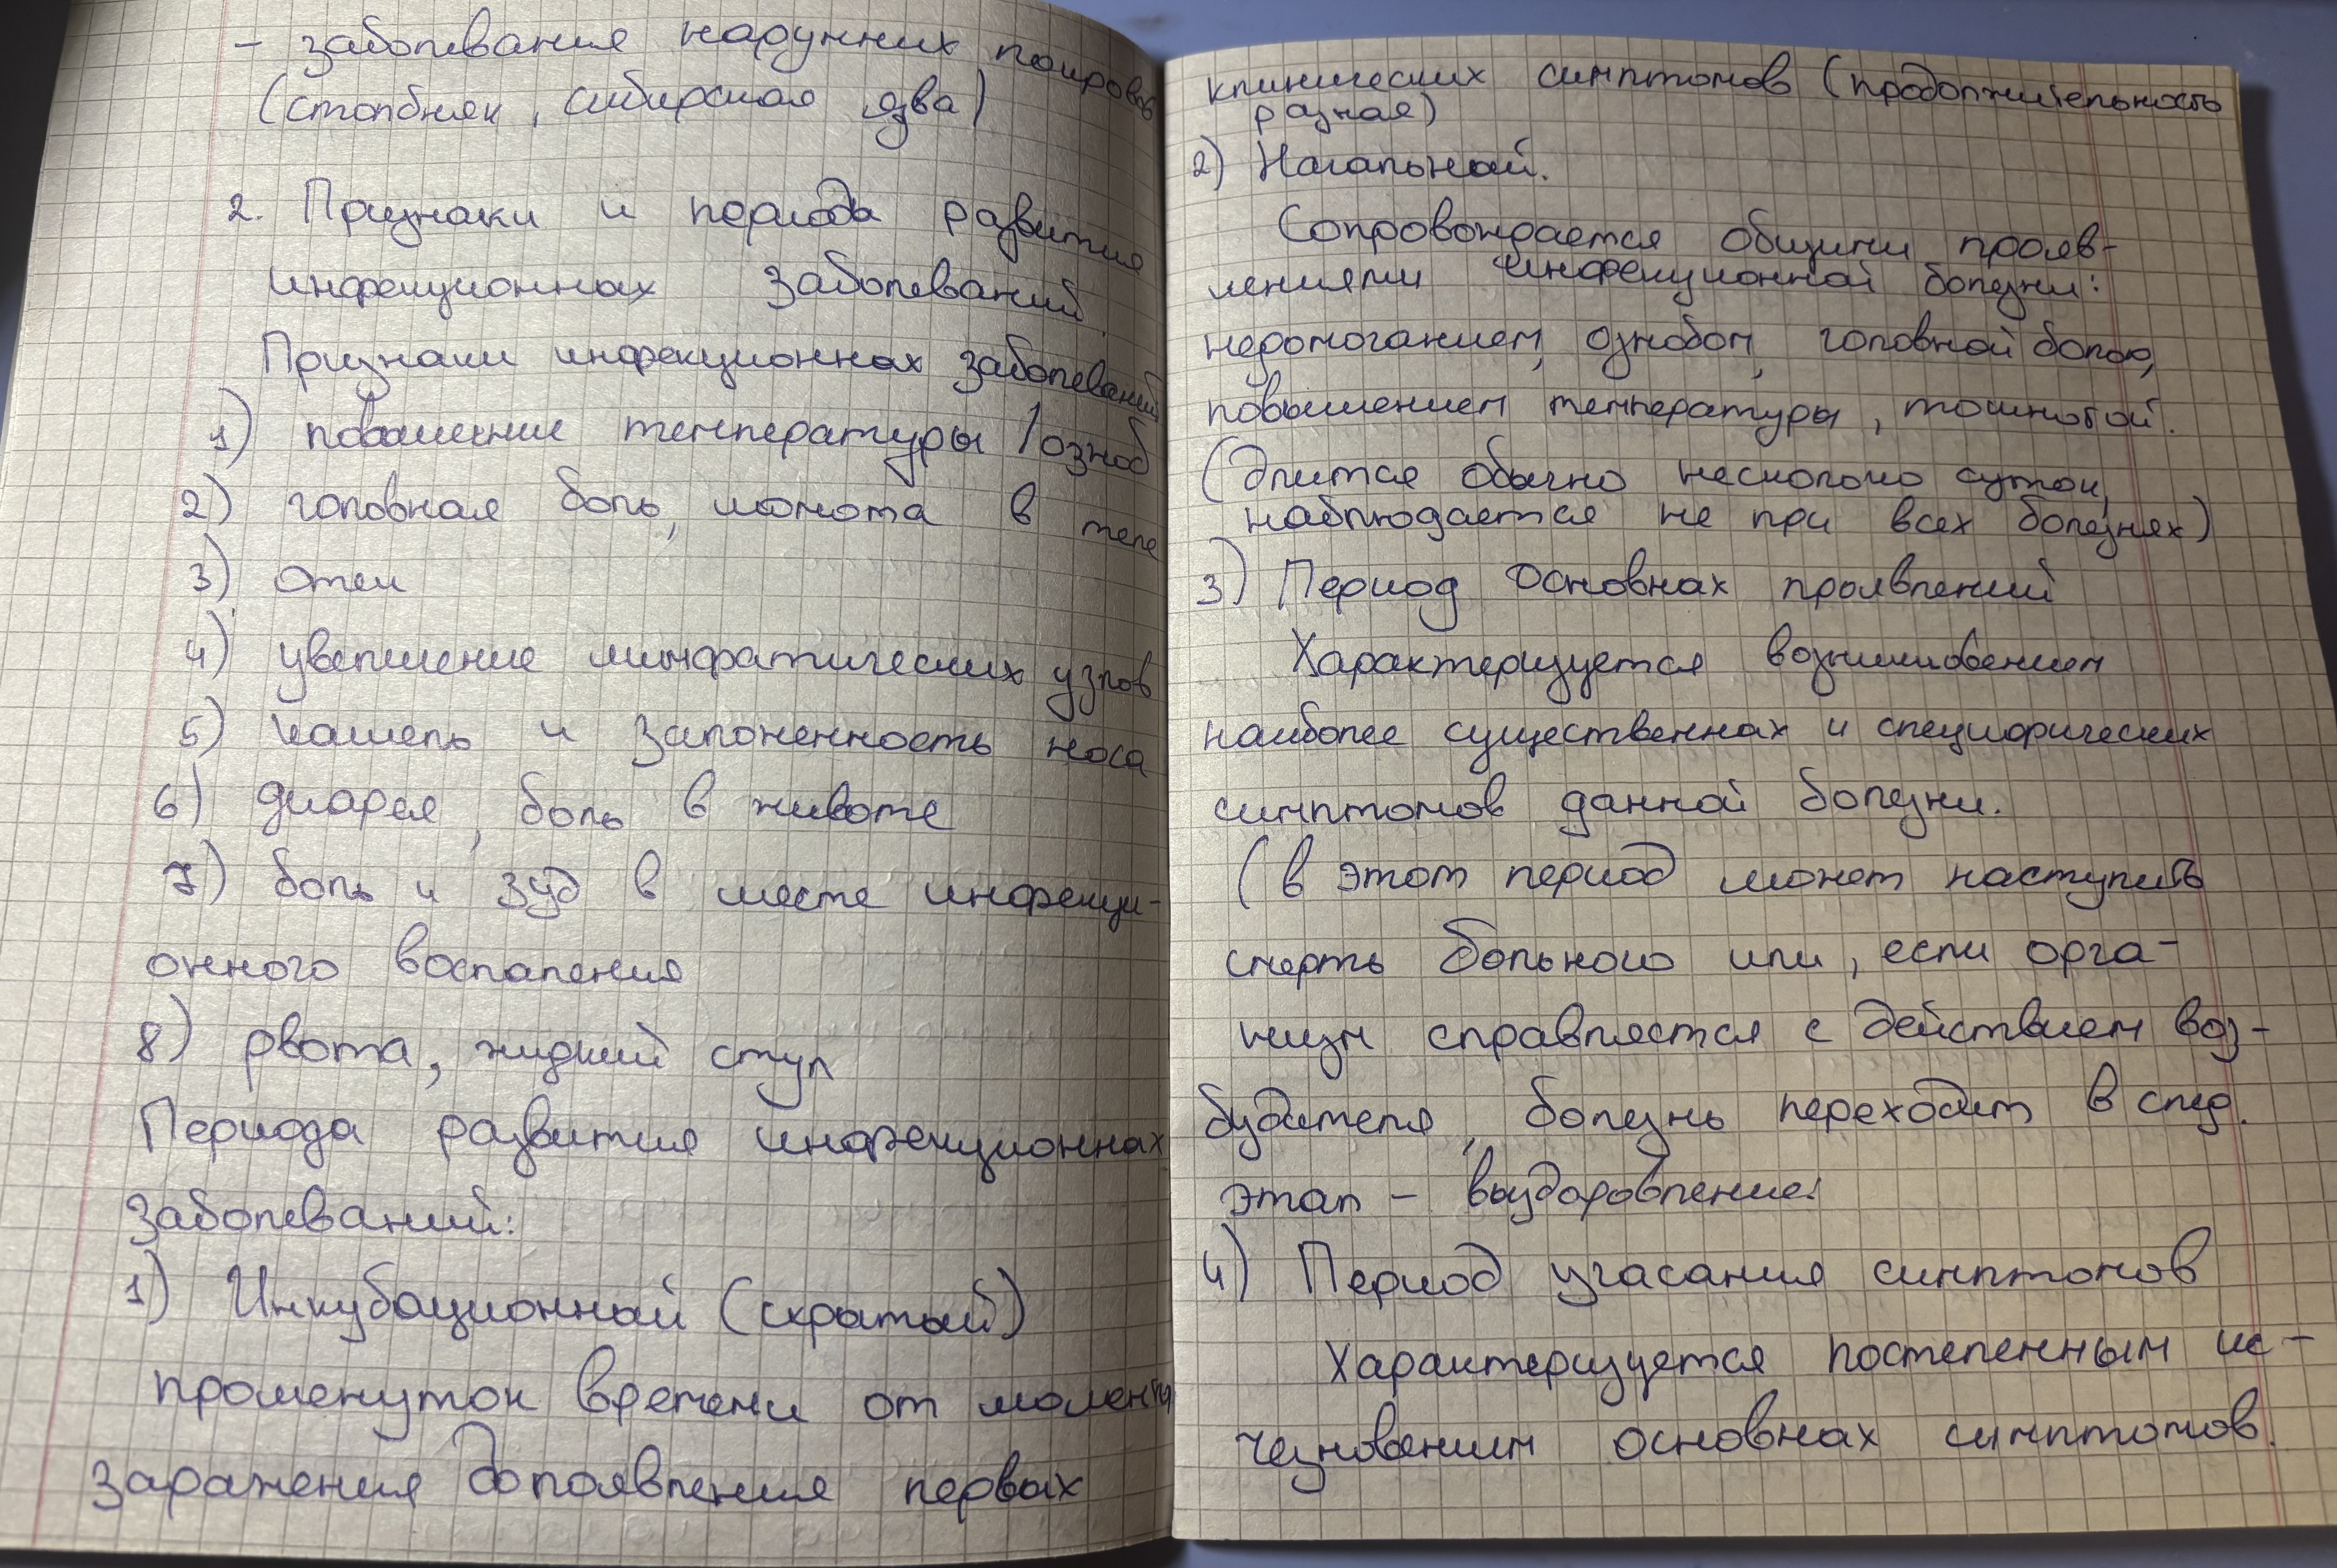 - заболевания наружних покровов
(столбняк, сибирская язва)
2. Признаки и периоды развития
инфекционных заболеваний.
Признаки инфекционных заболеваний
1) повышение температуры / озноб
2) головная боль, ломота в теле
3) отеки
4) увеличение лимфатических узлов
5) кашель и заложенность носа
6) диарея, боль в животе
7) боль и зуд в месте инфекци-
онного воспаления
8) рвота, жидкий стул
Периоды развития инфекционных
заболеваний:
1) Инкубационный (скрытый)
промежуток времени от момента
заражения до появления первых
клинических симптомов (продолжительность
разная)
2) Начальный.
Сопровождается общими прояв-
лениями инфекционной болезни:
недомоганием, ознобом, головной болью,
повышением температуры, тошнотой.
(Длится обычно несколько суток,
наблюдается не при всех болезнях)
3) Период основных проявлений
Характеризуется возникновением
наиболее существенных и специфических
симптомов данной болезни.
(в этот период может наступить
смерть больного или, если орга-
низм справляется с действием воз-
будителя, болезнь переходит в след.
этап - выздоровление.
4) Период угасания симптомов
Характеризуется постепенным ис-
чезновением основных симптомов.